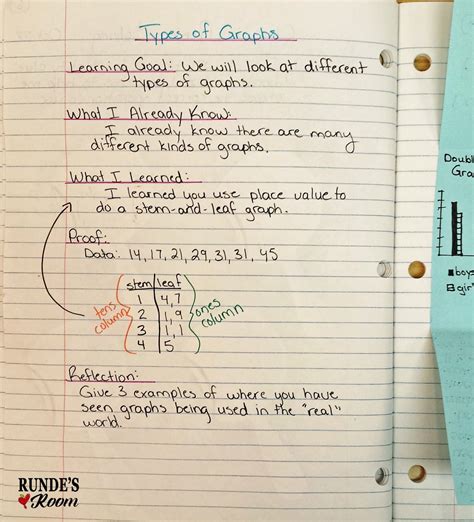 Types of Graphs
Learning Goal: We will look at different
types of graphs.
What I Already Know:
I already know there are many
different kinds of graphs.
What I Learned:
I learned you use place value to
do a stem-and-leaf graph.
Proof:
Data: 14, 17, 21, 29, 31, 31, 45
stem leaf
1 4,7
2 1,9
3 1,1
4 5
tens
column
ones
column
Reflection:
Give 3 examples of where you have
seen graphs being used in the "real"
world.
Doubl
Gra
boys
gir
RUNDE'S
Room